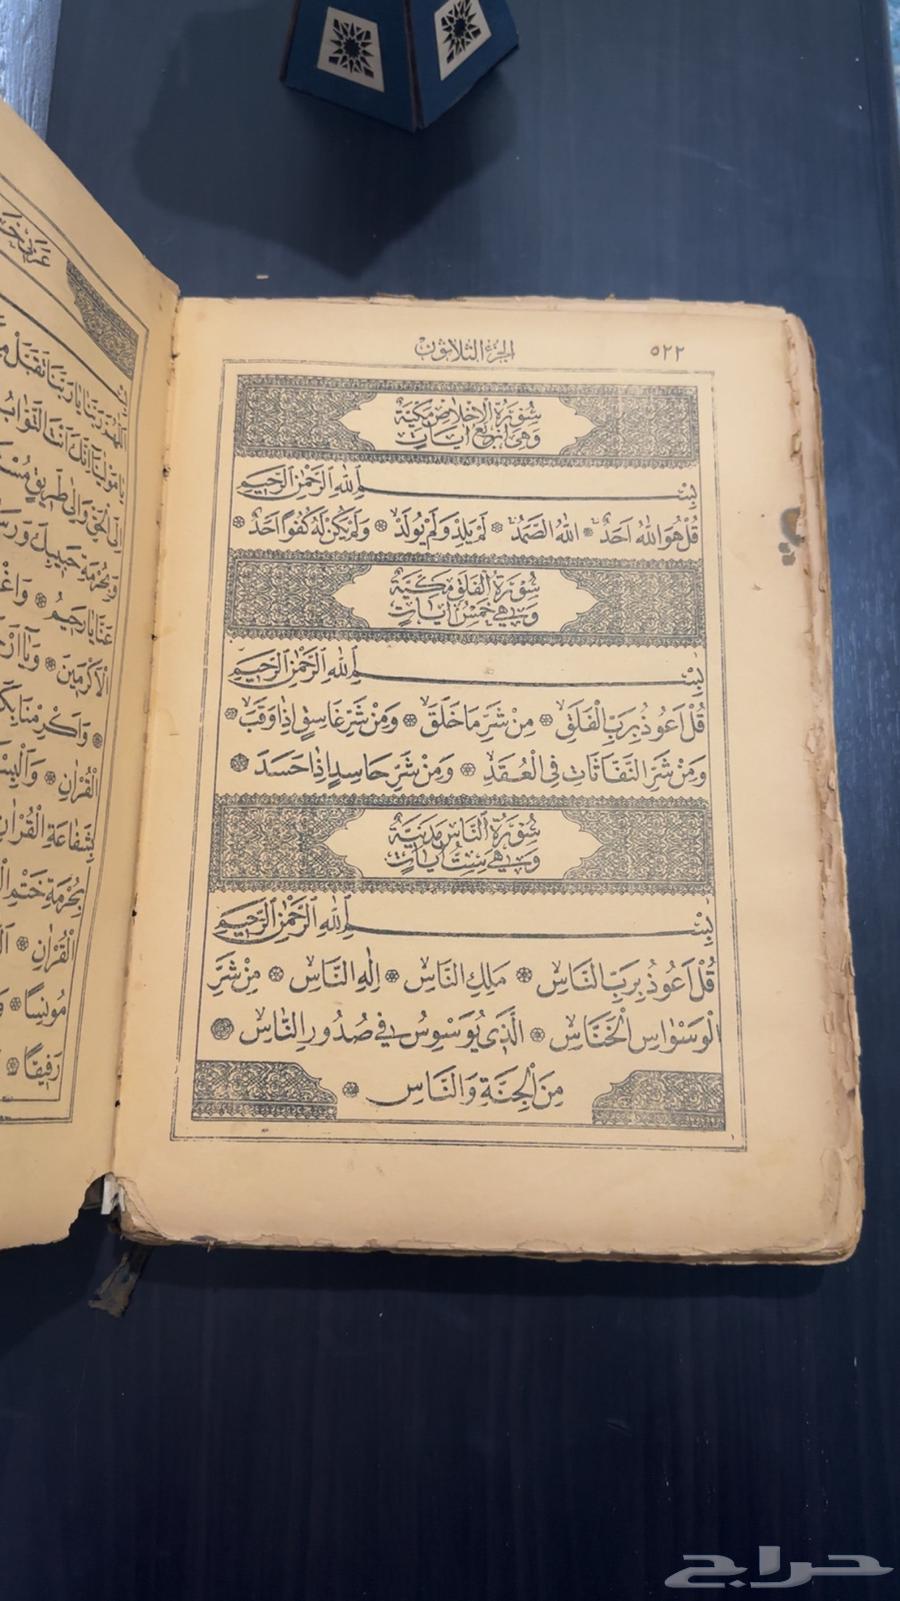 ٥٢٢
الجزء الثلاثون
سُورَةُ الْإِخْلَاصِ مَكِّيَّةٌ
وَهِيَ أَرْبَعُ آيَاتٍ
بِسْمِ اللهِ الرَّحْمٰنِ الرَّحِيمِ
قُلْ هُوَ اللهُ اَحَدٌ ۞ اَللهُ الصَّمَدُ ۞ لَمْ يَلِدْ وَلَمْ يُولَدْ ۞ وَلَمْ يَكُنْ لَهُ كُفُوًا اَحَدٌ ۞
سُورَةُ الْفَلَقِ مَكِّيَّةٌ
وَهِيَ خَمْسُ آيَاتٍ
بِسْمِ اللهِ الرَّحْمٰنِ الرَّحِيمِ
قُلْ اَعُوذُ بِرَبِّ الْفَلَقِ ۞ مِنْ شَرِّ مَا خَلَقَ ۞ وَمِنْ شَرِّ غَاسِقٍ اِذَا وَقَبَ ۞
وَمِنْ شَرِّ النَّفَّاثَاتِ فِي الْعُقَدِ ۞ وَمِنْ شَرِّ حَاسِدٍ اِذَا حَسَدَ ۞
سُورَةُ النَّاسِ مَدَنِيَّةٌ
وَهِيَ سِتُّ آيَاتٍ
بِسْمِ اللهِ الرَّحْمٰنِ الرَّحِيمِ
قُلْ اَعُوذُ بِرَبِّ النَّاسِ ۞ مَلِكِ النَّاسِ ۞ اِلٰهِ النَّاسِ ۞ مِنْ شَرِّ
الْوَسْوَاسِ الْخَنَّاسِ ۞ اَلَّذِي يُوَسْوِسُ فِي صُدُورِ النَّاسِ ۞
مِنَ الْجِنَّةِ وَالنَّاسِ ۞
يَا رَبَّنَا تَقَبَّلْ
اِنَّكَ اَنْتَ التَّوَّابُ
الْقُرْاٰنِ
بِشَفَاعَةِ الْقُرْاٰنِ
بِحُرْمَةِ خَتْمِ
الْقُرْاٰنِ ۞
مُونِسًا ۞
رَفِيقًا ۞
حراج